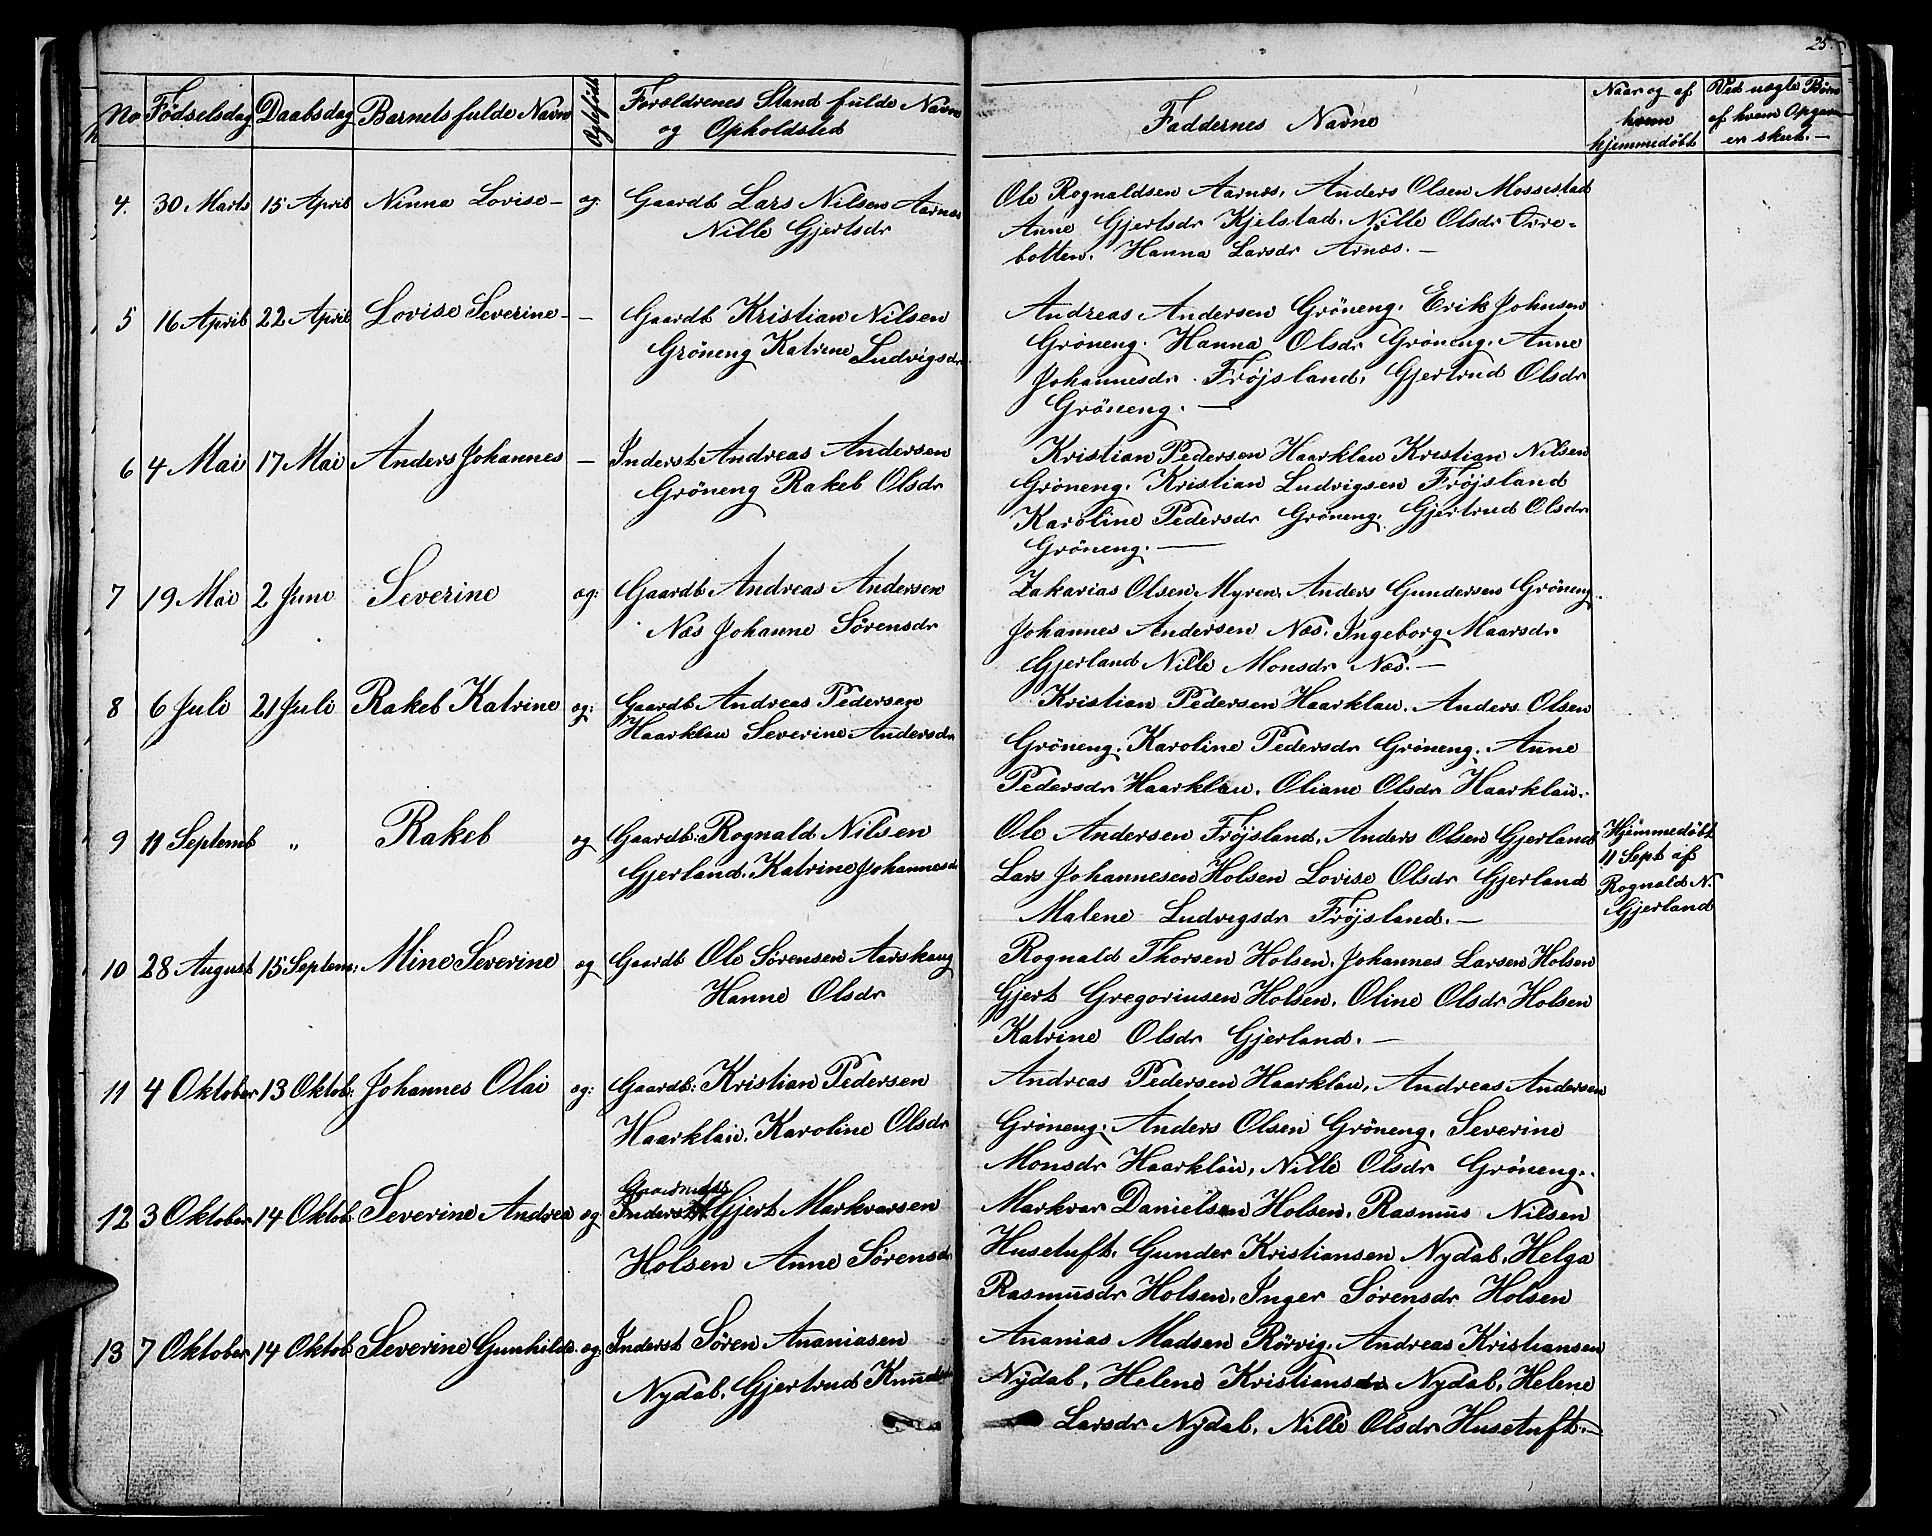 25.
No Fødselsdag Daabsdag Barnets fulde Navn Ogtefødt Forældrenes Stand fulde Navn og Opholdsted Faddernes Navne Naar og af hvem hjemmedøbt Ved uægte Børn af hvem Opgaven er skeet.—
4. 30 Marts 15 April Ninna Lovise— og: Gaardb Lars Nilsen Aarnæs
Nille Gjertsdr
Ole Rognaldsen Aarnæs. Anders Olsen Mossestad
Anne Gjertsdr Kjelstad. Nille Olsdr Orre=
botten. Hanna Larsdr Arnæs.—
5 16 April 22 April Lovise Severine— — Gaardb Kristian Nilsen
Gröneng Katrine Ludvigsdr
Andreas Andersen Gröneng. Erik Johnsen
Gröneng. Hanna Olsdr Gröneng. Anne
Johannesdr Frøjsland. Gjertrud Olsdr
Gröneng.—
6 4 Mai 17 Mai Anders Johannes — Inderst Andreas Andersen
Gröneng Rakel Olsdr
Kristian Pedersen Haarklau Kristian Nilsen
Gröneng. Kristian Ludvigsen Frøjsland
Karoline Pedersdr Gröneng. Gjertrud Olsdr
Gröneng.—
7 19 Mai 2 Juni Severine og: Gaardb Andreas Andersen
Næs Johanne Sörensdr
Zakarias Olsen Myren. Anders Gundersen Gröneng
Johannes Andersen Næs. Ingeborg Maarsdr
Gjerland Nille Monsdr Næs.—
8 6 Juli 21 Juli Rakel Katrine og: Gaardb Andreas Pedersen
Haarklau Severine Andersdr
Kristian Pedersen Haarklau. Anders Olsen
Gröneng. Karoline Pedersdr Gröneng. Anne
Pedersdr Haarklau. Oliane Olsdr Haarklau.
9 11 Septemb " Rakel og Gaardb: Rognald Nilsen
Gjerland. Katrine Johannesdr
Ole Andersen Frøjsland. Anders Olsen Gjerland
Lars Johannesen Holsen Lovise Olsdr Gjerland
Malene Ludvigsdr Frøjsland.—
Hjemmedøbt
11 Sept af
Rognald N.
Gjerland
10 28 August 15 Septem: Mine Severine og Gaardb Ole Sörensen Aarskaug
Hanne Olsdr
Rognald Thorsen Holsen. Johannes Larsen Holsen
Gjert Gregoriusen Holsen. Oline Olsdr Holsen
Katrine Olsdr Gjerland.—
11 4 Oktober 13 Oktob: Johannes Olai og: Gaardb: Kristian Pedersen
Haarklau. Karoline Olsdr
Andreas Pedersen Haarklau, Andreas Andersen
Gröneng. Anders Olsen Gröneng. Severine
Monsdr Haarklau, Nille Olsdr Gröneng.
12 3 Oktober 14 Oktob: Severine Andrea og Inderst Gjert Markvarsen
Holsen Anne Sörensdr
Markvar Danielsen Holsen. Rasmus Nilsen
Husetuft. Gunder Kristiansen Nydal. Helga
Rasmusdr Holsen. Inger Sörensdr Holsen
13 7 Oktober 14 Oktob Severine Gunhilde og: Inderst Sören Ananiasen
Nydal. Gjertrud Knudsdr
Ananias Madsen Rörvig. Andreas Kristiansen
Nydal. Helene Kristiansdr Nydal. Helene
Larsdr Nydal. Nille Olsdr Husetuft.—